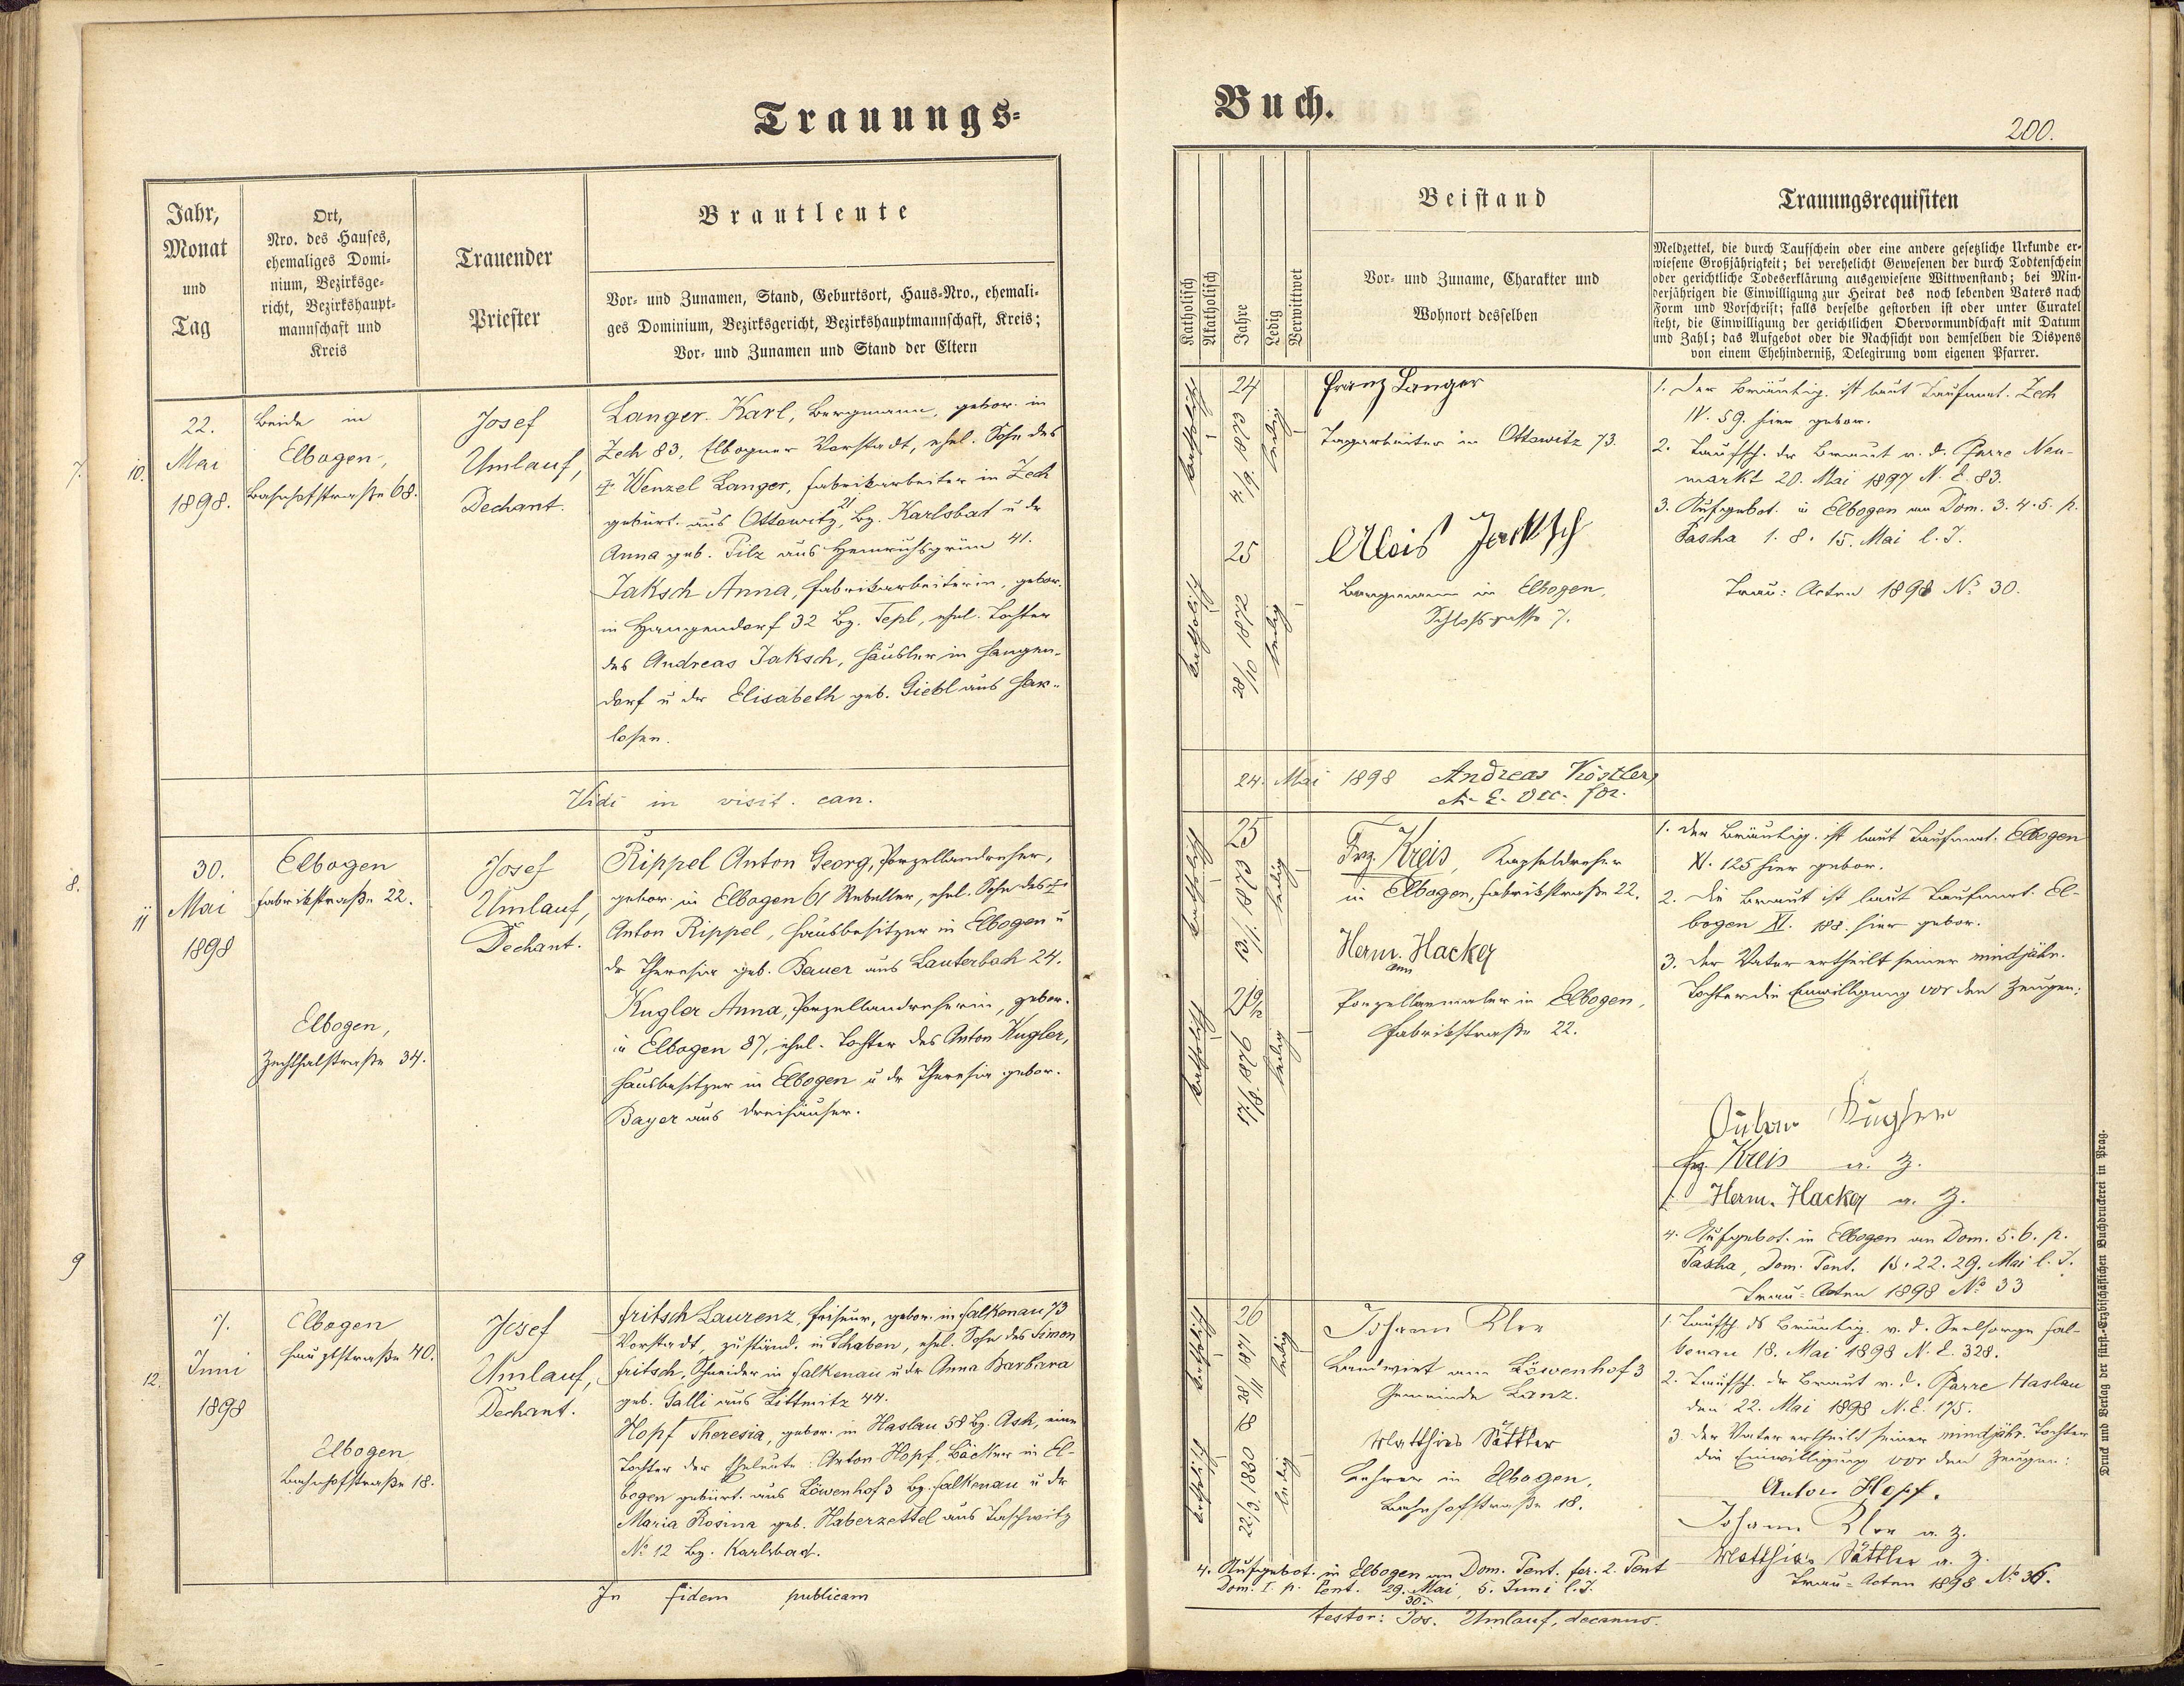 Trauungs-
Jahr,
Monat
und
Tag
Ort,
Nro. des Hauses,
ehemaliges Domi-
nium, Bezirksge-
richt, Bezirkshaupt-
mannschaft und
Kreis
Trauender
Priester
Brautleute
Vor- und Zunamen, Stand, Geburtsort, Haus-Nro., ehemali-
ges Dominium, Bezirksgericht, Bezirkshauptmannschaft, Kreis;
Vor- und Zunamen und Stand der Eltern
7.
10.
22.
Mai
1898.
Beide in
Elbogen,
Bahnhofstraße 68.
Josef
Umlauf,
Dechant.
Langer Karl, Bergmann, gebor. in
Zech 83, Elbogner Vorstadt, ehel. Sohn des
Wenzel Langer, Fabrikarbeiter in Zech
gebürt. aus Ottowitz 21, Bz. Karlsbad u. der
Anna geb. Pilz aus Heinrichsgrün 41.
Jaksch Anna, Fabrikarbeiterin, gebor.
in Hangendorf 32 Bz. Tepl, ehel. Tochter
des Andreas Jaksch, Häusler in Hangen-
dorf u. der Elisabeth geb. Giebl aus Har-
losen.
Vidi in visit. can.
8.
11
30.
Mai
1898
Elbogen
Fabrikstraße 22.
Elbogen,
Zechthalstraße 34.
Josef
Umlauf,
Dechant.
Rippel Anton Georg, Porzellandreher,
gebor. in Elbogen 61, ehel. Sohn des
Anton Rippel, Hausbesitzer in Elbogen u
der Theresia geb. Bauer aus Lauterbach 24.
Kugler Anna, Porzellandreherin, gebor.
in Elbogen 87, ehel. Tochter des Anton Kugler,
Hausbesitzer in Elbogen u der Theresia gebor.
Bayer aus Dreihäuser.
9
12.
7.
Juni
1898
Elbogen
Hauptstraße 40.
Elbogen
Bahnhofstraße 18.
Josef
Umlauf,
Dechant.
Fritsch Laurenz, Friseur, gebor. in Falkenau 73
Vorstadt, zuständ. in Schaben, ehel. Sohn des Simon
Fritsch, Schneider in Falkenau u der Anna Barbara
geb. Galli aus Littmitz 44.
Hopf Theresia, gebor. in Haslau 58 Bz. Asch, eine
Tochter der Eheleute: Anton Hopf, Bäcker in El-
bogen gebürt. aus Löwenhof 3 Bz. Falkenau u der
Maria Rosina geb. Haberzettel aus Taschwitz
No 12 Bz. Karlsbad.
In fidem publicam
Buch.
200.
Katholisch
Akatholisch
Jahre
Ledig
Verwittwet
Beistand
Vor- und Zuname, Charakter und
Wohnort desselben
Trauungsrequisiten
Meldzettel, die durch Taufschein oder eine andere gesetzliche Urkunde er-
wiesene Großjährigkeit; bei verehelicht Gewesenen der durch Todtenschein
oder gerichtliche Todeserklärung ausgewiesene Wittwenstand; bei Min-
derjährigen die Einwilligung zur Heirat des noch lebenden Vaters nach
Form und Vorschrift; falls derselbe gestorben ist oder unter Curatel
steht, die Einwilligung der gerichtlichen Obervormundschaft mit Datum
und Zahl; das Aufgebot oder die Nachsicht von demselben die Dispens
von einem Ehehinderniß, Delegirung vom eigenen Pfarrer.
katholisch
24
4./9. 1873
ledig
Franz Langer
Tagarbeiter in Ottowitz 73.
katholisch
25
28/10 1872
ledig
Alois Jaksch
Bergmann in Elbogen,
Schloßgasse 7.
1. Der Bräutig. ist laut Taufmat. Zech
IV. 59. hier gebor.
2. Taufsch. der Braut v. d. Pfarre Neu-
markt 20. Mai 1897 N. E. 83.
3. Aufgebot. in Elbogen an Dom. 3. 4. 5. p.
Pascha 1. 8. 15. Mai l. J.
Trau: Acten 1898 No 30.
24. Mai 1898 Andreas Köstler,
katholisch
25
13./1. 1873
ledig
Frz. Kreis, Kapseldreher
in Elbogen, Fabrikstraße 22.
katholisch
17/8. 1876
ledig
Herm. Hacker
Porzellanmaler in Elbogen,
Fabrikstraße 22.
1. Der Bräutig. ist laut Taufmat. Elbogen
XI. 125 hier gebor.
2. Die Braut ist laut Taufmat. El-
bogen XI. 188. hier gebor.
3. Der Vater ertheilt seiner mindjähr.
Tochter die Einwilligung vor den Zeugen:
Anton Kugler
Frz. Kreis a. Z.
Herm. Hacker a. Z.
4. Aufgebot. in Elbogen an Dom. 5. 6. p.
Pascha, Dom. Pent. 15. 22. 29. Mai l. J.
Trau: Acten 1898 No 33
katholisch
26
1871
ledig
Johann Klee
Landwirt am Löwenhof 3
Gemeinde Lanz.
katholisch
18
22/3. 1880
ledig
Matthias Sattler
Lehrer in Elbogen,
Bahnhofstraße 18.
1. Taufsch. ds Bräutig. v. d. Seelsorge Fal-
kenau 18. Mai 1898 N. E. 328.
2. Taufsch. der Braut v. d. Pfarre Haslau
den 22. Mai 1898 N. E. 175.
3. Der Vater ertheilt seiner mindjähr. Tochter
die Einwilligung vor den Zeugen:
Anton Hopf.
Johann Klee a. Z.
Matthias Sattler a. Z.
Trau: Acten 1898 No 36.
4. Aufgebot. in Elbogen an Dom. Pent. fer. 2. Pent
Dom. I. p. Pent. 29. 30. Mai, 5. Juni l. J.
testor: Jos. Umlauf, decanus.
Druck und Verlag der fürst.-Erzbischöflichen Buchdruckerei in Prag.